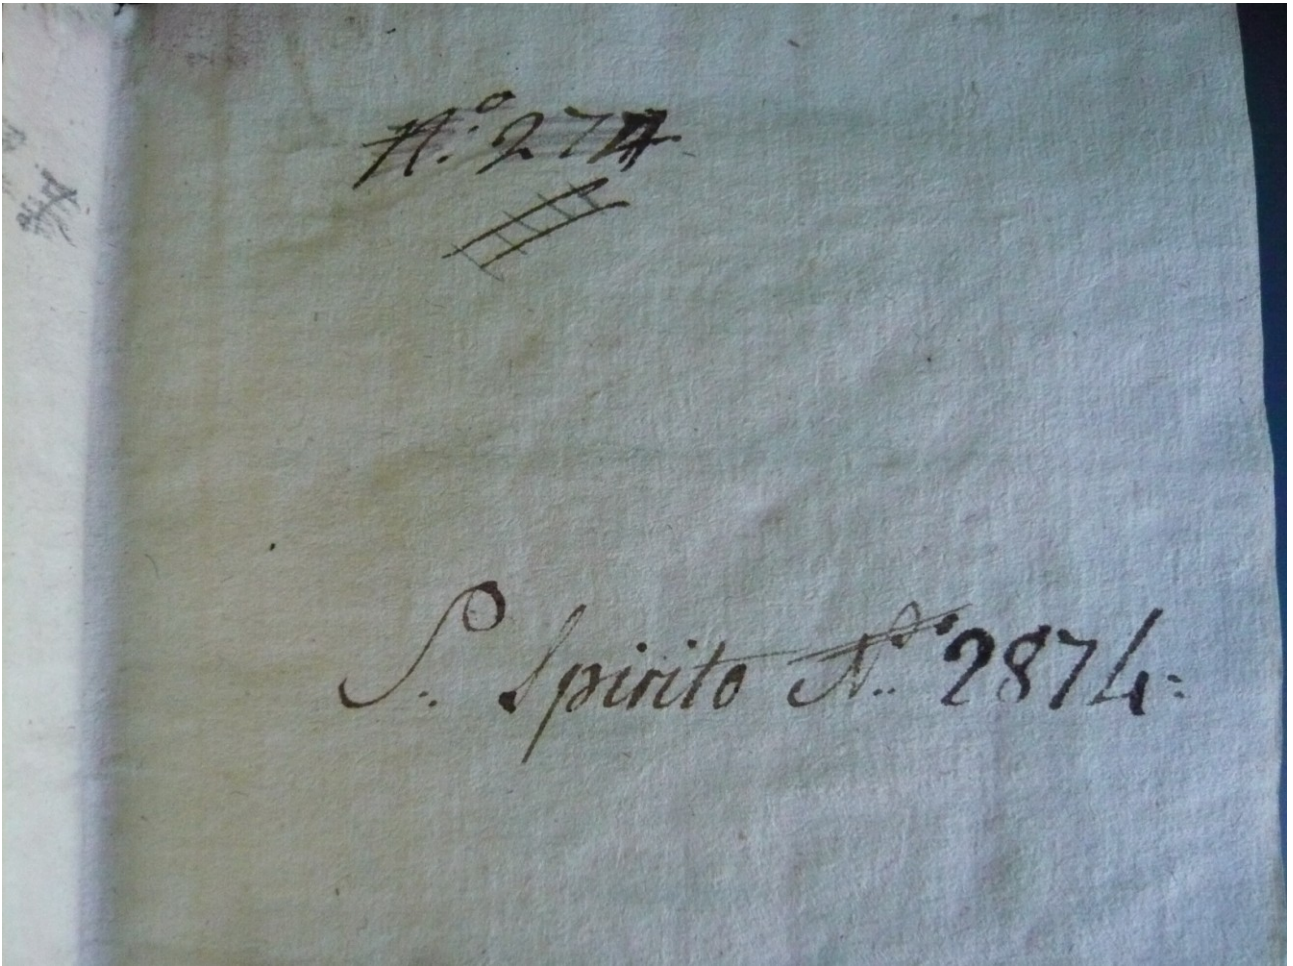 N.º 274
S. Spirito N.º 2874